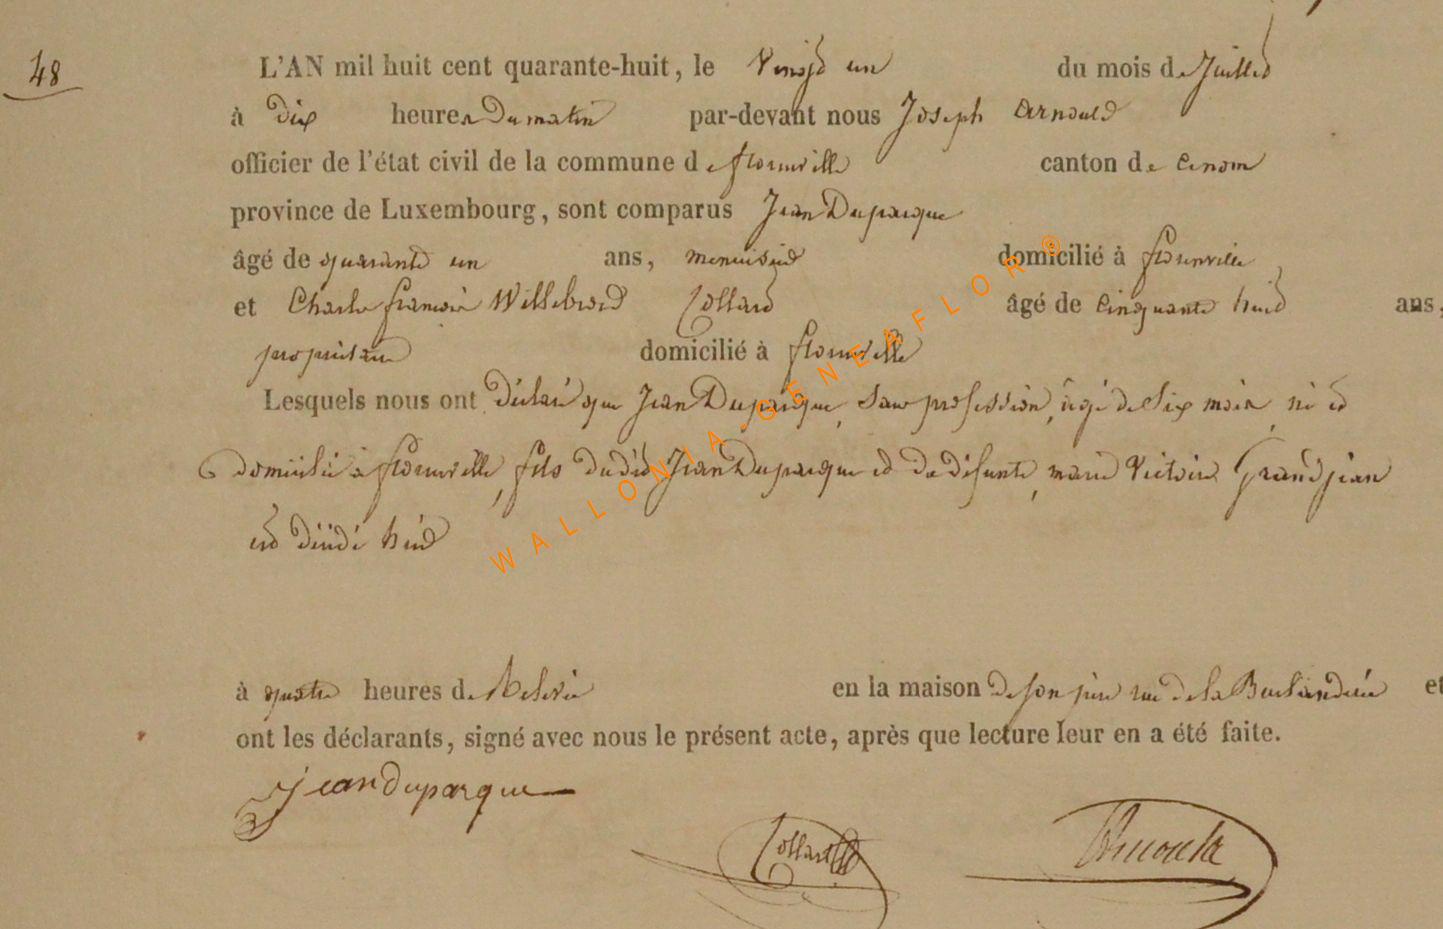 48
L'AN mil huit cent quarante-huit, le Vingt un du mois de Juillet
à dix heures du matin par-devant nous Joseph Arnould
officier de l'état civil de la commune de florenville canton de
province de Luxembourg, sont comparus Jean Duparque
âgé de quarante un ans, menuisier domicilié à florenville
et Charles françois Willebrord Collard âgé de cinquante huit ans,
propriétaire domicilié à florenville
Lesquels nous ont déclaré que Jean Duparque, sans profession, âgé de Six mois, né et
domicilié à florenville, fils du dit Jean Duparque et de défunte, marie Victoire Grandjean
est décédé hier
à quatre heures de Relevée en la maison de son père rue de la et
ont les déclarants, signé avec nous le présent acte, après que lecture leur en a été faite.
jean duparque
Collard Arnould
WALLONIA-GENEAFLOR®